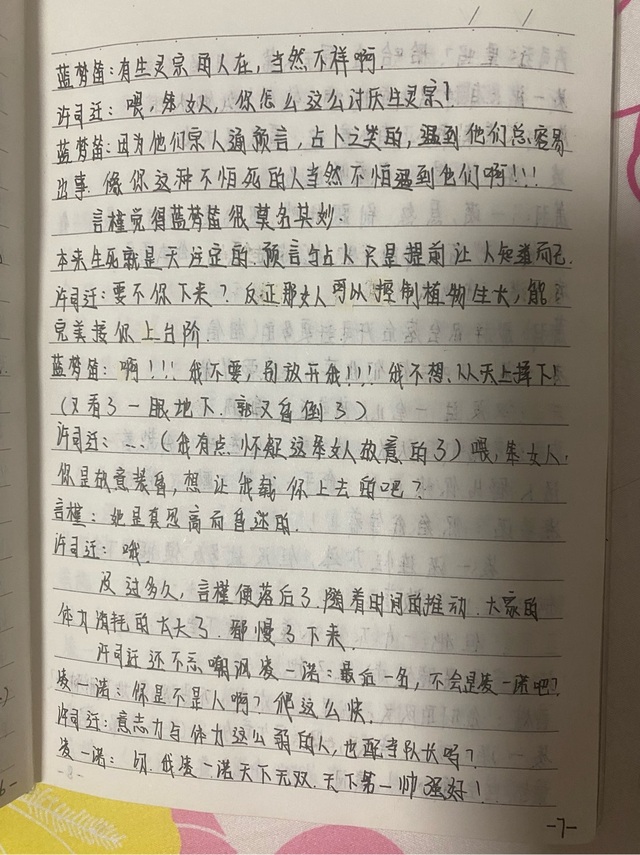 蓝梦笛:有生灵宗的人在,当然不祥啊.
许司迁:喂,笨女人,你怎么这么讨厌生灵宗?
蓝梦笛:因为他们宗人通预言,占卜之类的,遇到他们总容易
出事.像你这种不怕死的人当然不怕遇到他们啊!!!
言槿觉得蓝梦笛很莫名其妙.
本来生死就是天注定的.预言与占卜只是提前让人知道而已.
许司迁:要不你下来?反正那女人可以控制植物生长,能
完美接你上台阶.
蓝梦笛:啊!!!我不要,别放开我!!!我不想从天上摔下!
(又看了一眼地下.就又昏倒了)
许司迁:...(我有点怀疑这笨女人故意的了)喂,笨女人,
你是故意装昏,想让我载你上去的吧?
言槿:她是真恐高而昏迷的.
许司迁:哦.
没过多久,言槿便落后了.随着时间的推动.大家的
体力消耗的太大了.都慢了下来.
许司迁还不忘嘲讽凌一诺:最后一名,不会是凌一诺吧?
凌一诺:你是不是人啊?爬这么快.
许司迁:意志力与体力这么弱的人,也配当队长吗?
凌一诺:切.我凌一诺天下无双.天下第一帅强好!
-7-